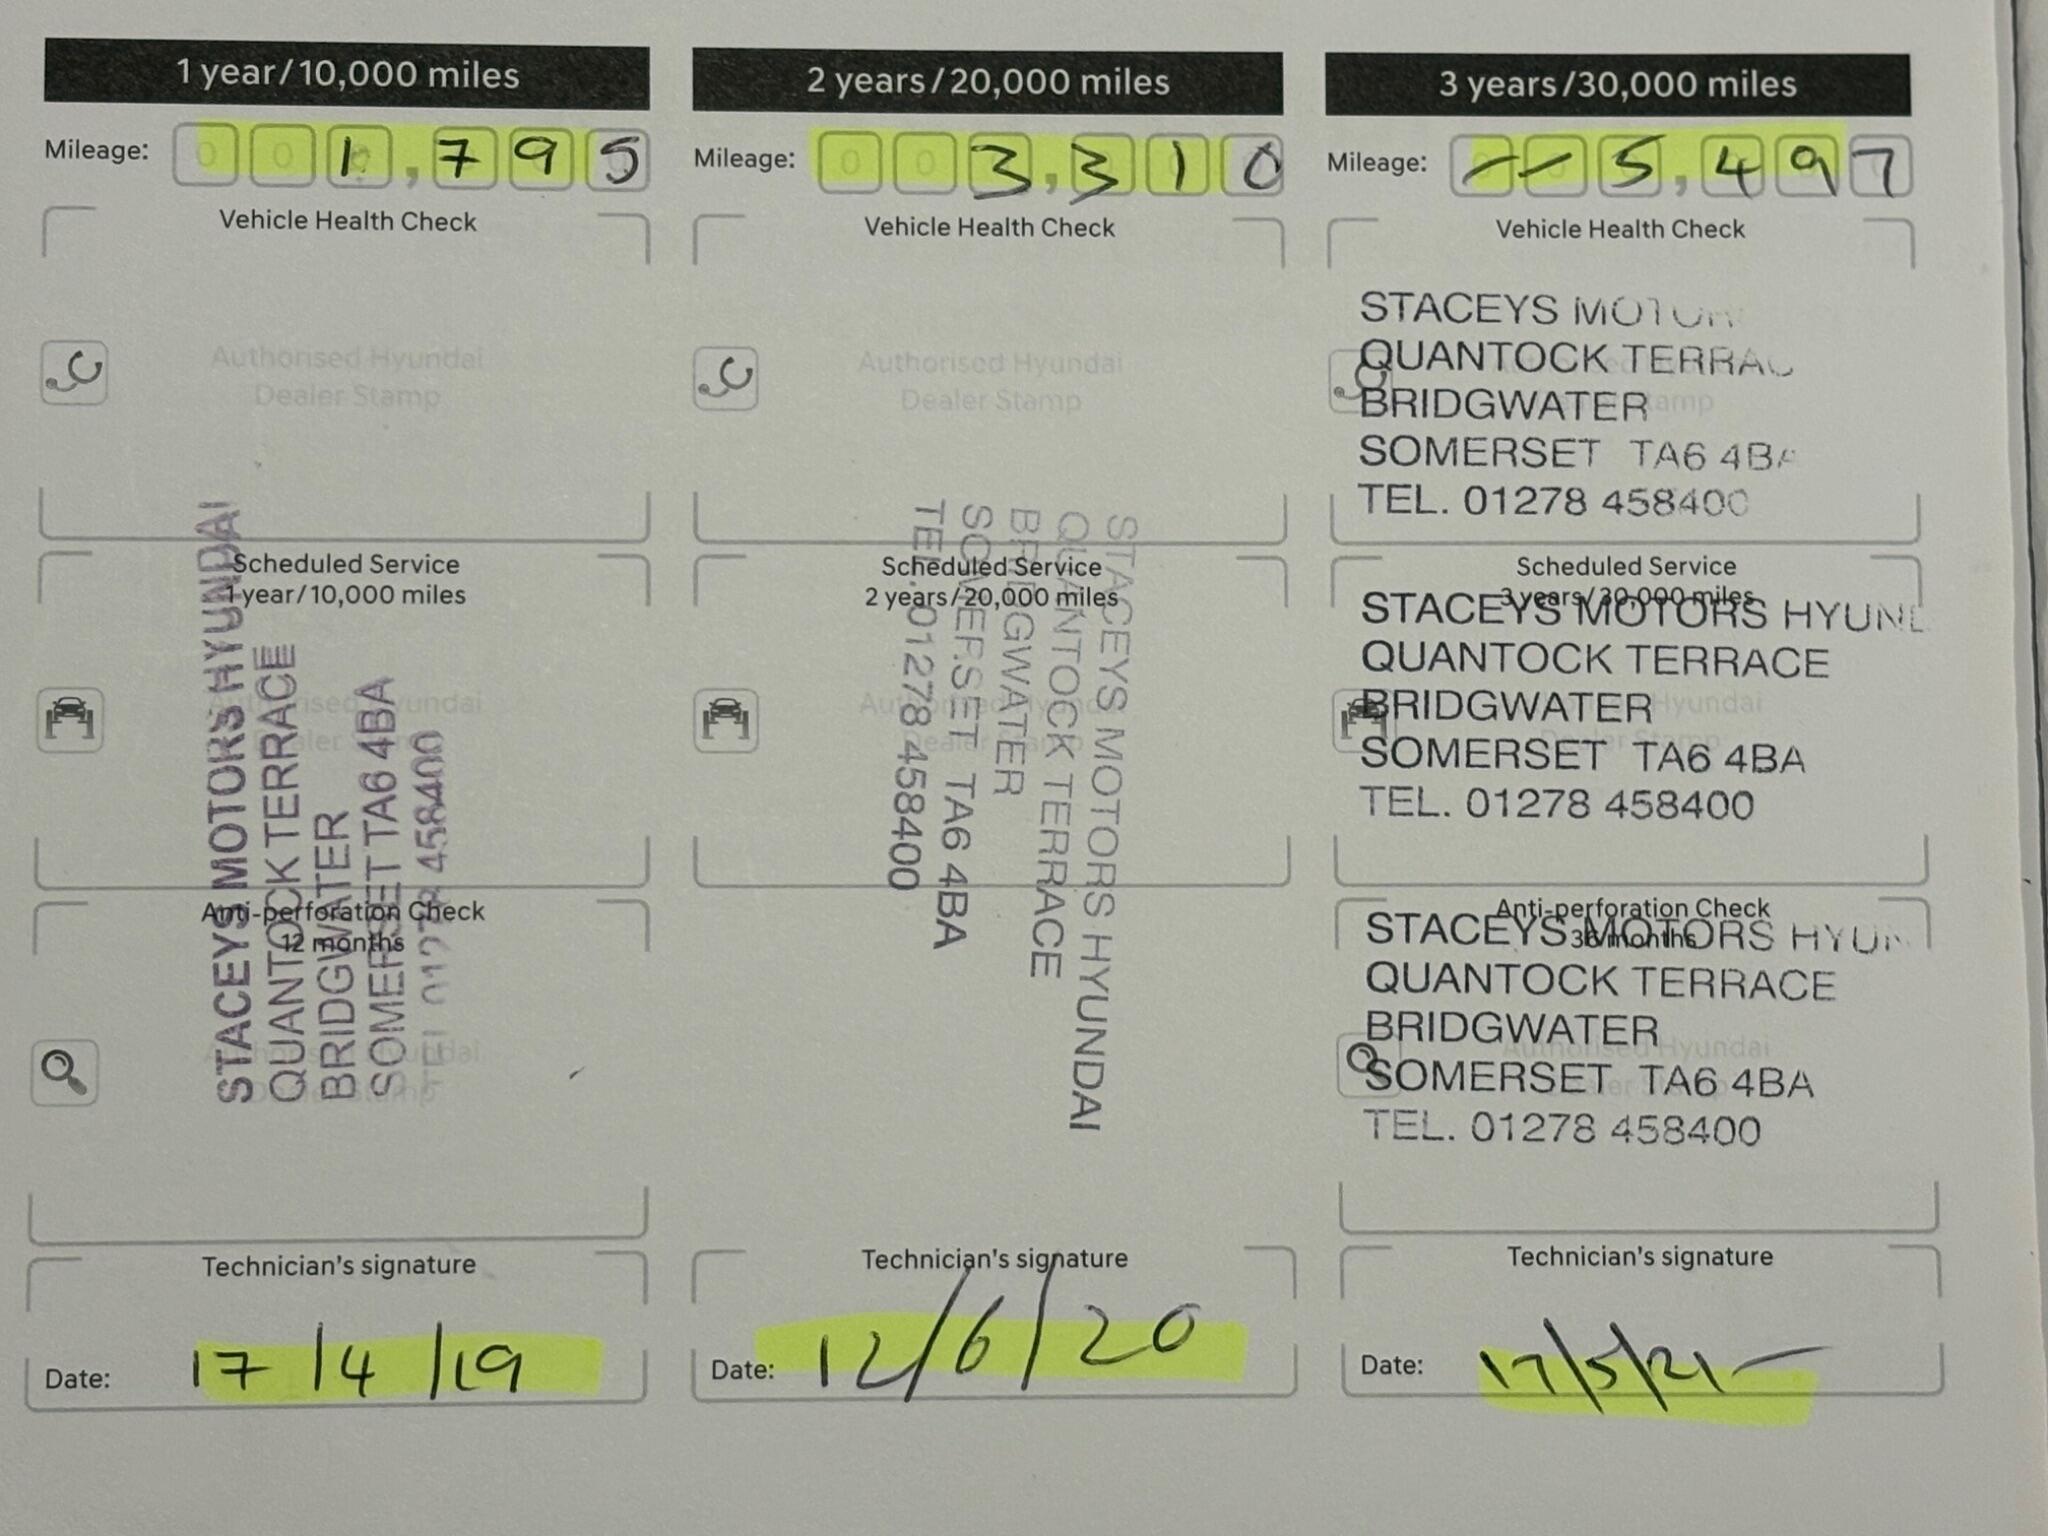 1 year/10,000 miles
Mileage: 0 0 1, 7 9 5
Vehicle Health Check
Authorised Hyundai
Dealer Stamp
Scheduled Service
1 year/10,000 miles
Authorised Hyundai
Dealer Stamp
Anti-perforation Check
12 months
Authorised Hyundai
Dealer Stamp
STACEYS MOTORS HYUNDAI
QUANTOCK TERRACE
BRIDGWATER
SOMERSET TA6 4BA
TEL 01278 458400
Technician's signature
Date: 17/4/19
2 years/20,000 miles
Mileage: 0 0 3, 3 1 0
Vehicle Health Check
Authorised Hyundai
Dealer Stamp
Scheduled Service
2 years/20,000 miles
Authorised Hyundai
Dealer Stamp
STACEYS MOTORS HYUNDAI
QUANTOCK TERRACE
BRIDGWATER
SOMERSET TA6 4BA
TEL. 01278 458400
Technician's signature
Date: 12/6/20
3 years/30,000 miles
Mileage: - - 5, 4 9 7
Vehicle Health Check
STACEYS MOTOR
QUANTOCK TERRAC
BRIDGWATER
SOMERSET TA6 4BA
TEL. 01278 458400
Scheduled Service
3 years/30,000 miles
STACEYS MOTORS HYUND
QUANTOCK TERRACE
BRIDGWATER
Hyundai
SOMERSET TA6 4BA
TEL. 01278 458400
Anti-perforation Check
36 months
STACEYS MOTORS HYUN
QUANTOCK TERRACE
BRIDGWATER
Authorised Hyundai
SOMERSET TA6 4BA
TEL. 01278 458400
Technician's signature
Date: 17/5/21